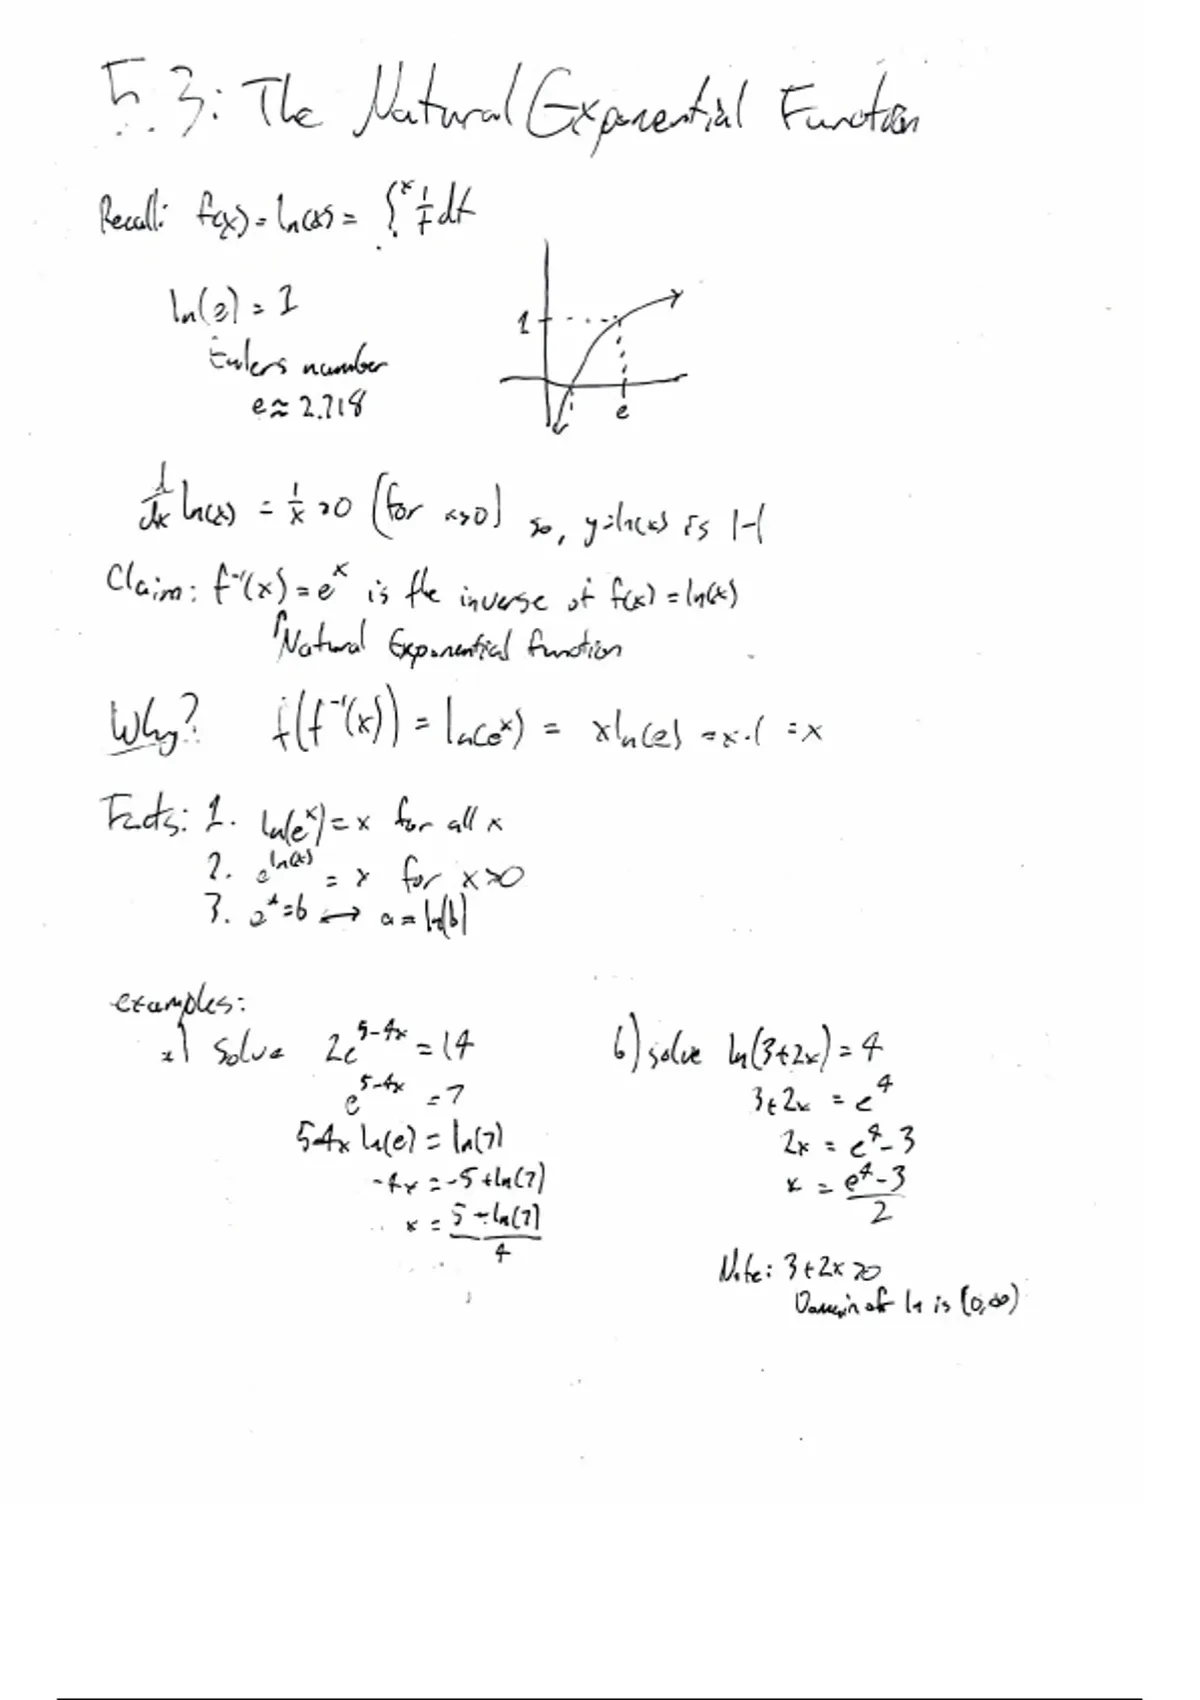 5.3: The Natural Exponential Function
Recall: f(x) = ln(x) = ∫₁ˣ 1/t dt
ln(e) = 1
Eulers number
e ≈ 2.718
1
e
d/dx ln(x) = 1/x > 0 (for x>0) so, y=ln(x) is 1-1
Claim: f⁻¹(x) = eˣ is the inverse of f(x) = ln(x)
↑Natural Exponential function
Why? f(f⁻¹(x)) = ln(eˣ) = xln(e) = x·1 = x
Facts: 1. ln(eˣ) = x for all x
2. e^ln(x) = x for x>0
3. eᵃ=b ↔ a = ln(b)
examples:
a) Solve 2e^(5-4x) = 14
e^(5-4x) = 7
5-4x ln(e) = ln(7)
-4x = -5 + ln(7)
x = (5 - ln(7))/4
b) solve ln(3+2x) = 4
3+2x = e⁴
2x = e⁴ - 3
x = (e⁴ - 3)/2
Note: 3+2x >0
Domain of ln is (0,∞)